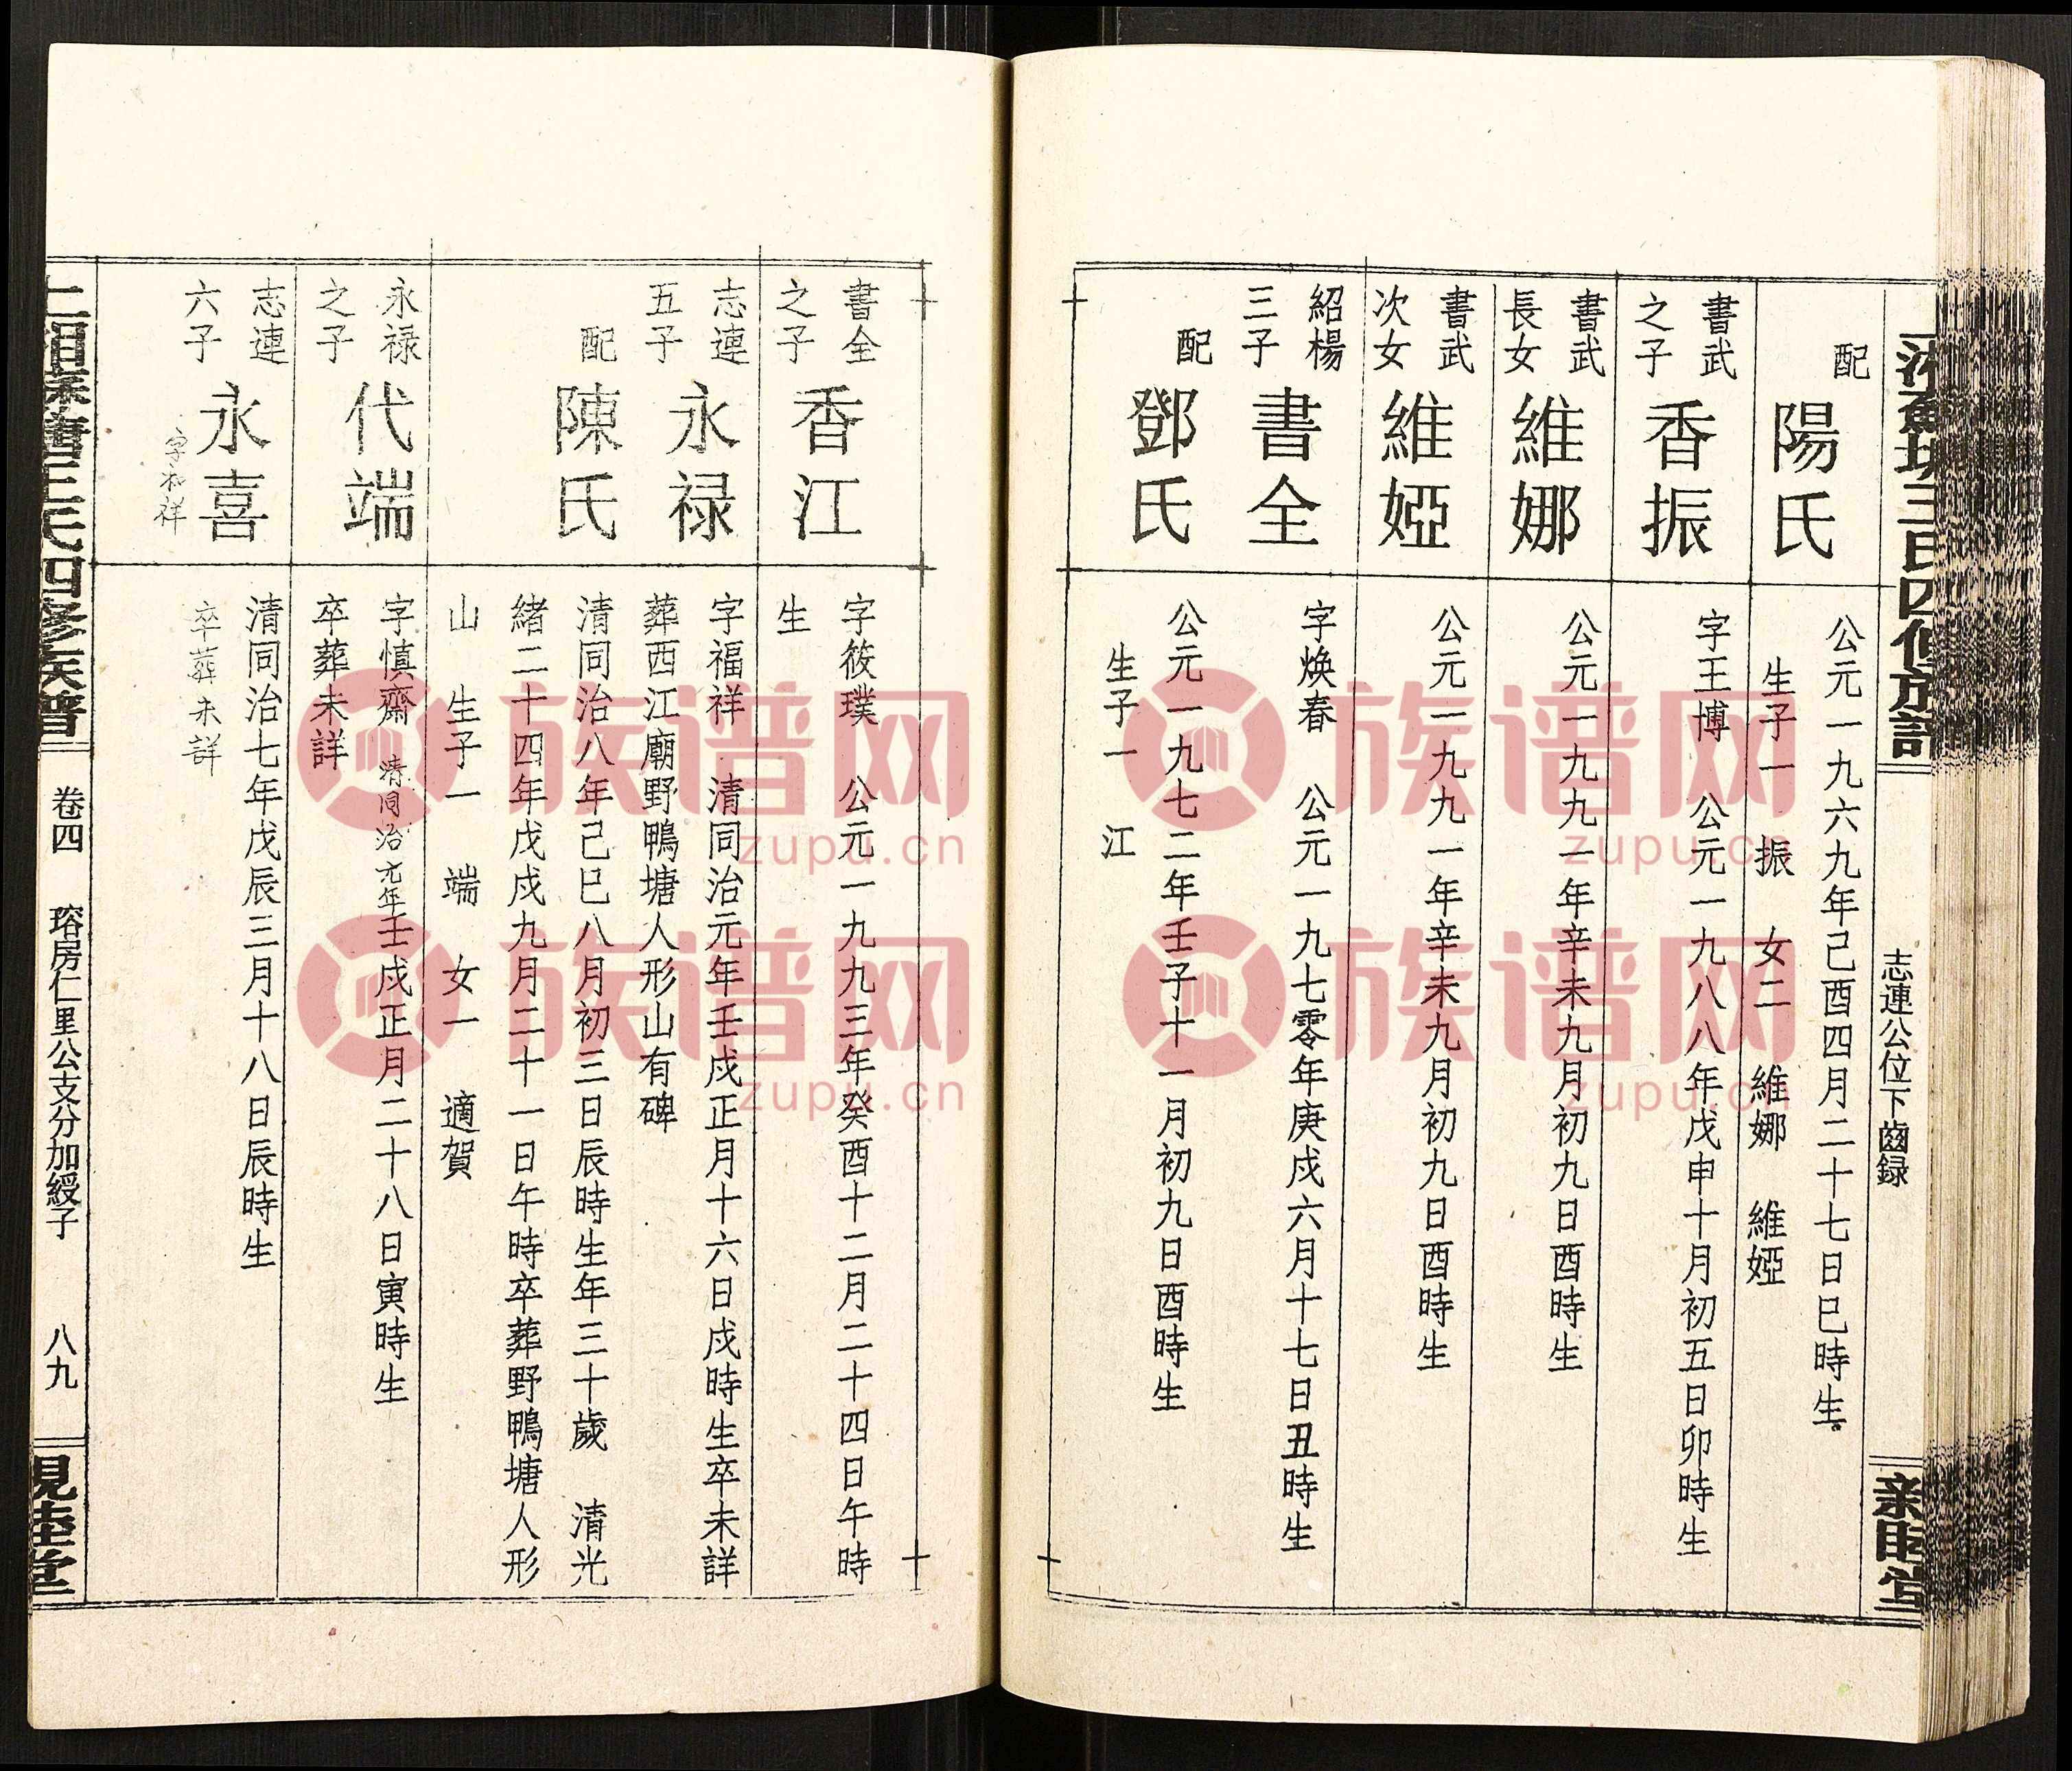 志連公位下齒録
配
陽氏
公元一九六九年己酉四月二十七日巳時生
生子一 振 女二 維娜 維婭
書武之子
香振
字王博 公元一九八八年戊申十月初五日卯時生
書武長女
維娜
公元一九九一年辛未九月初九日酉時生
書武次女
維婭
公元一九九一年辛未九月初九日酉時生
紹楊三子
書全
字焕春 公元一九七零年庚戌六月十七日丑時生
配
鄧氏
公元一九七二年壬子十一月初九日酉時生
生子一 江
書全之子
香江
字筱璞 公元一九九三年癸酉十二月二十四日午時
生
志連五子
永禄
字福祥 清同治元年壬戌正月十六日戌時生卒未詳
葬西江廟野鴨塘人形山有碑
配
陳氏
清同治八年己巳八月初三日辰時生年三十歲 清光
緒二十四年戊戌九月二十一日午時卒葬野鴨塘人形
山 生子一 端 女一 適賀
永禄之子
代端
字慎齋 清同治元年壬戌正月二十八日寅時生
卒葬未詳
志連六子
永喜
字和祥
清同治七年戊辰三月十八日辰時生
卒葬未詳
卷四 瑢房仁里公支分加綬子 八九
族谱网
zupu.cn
族谱网
zupu.cn
族谱网
zupu.cn
族谱网
zupu.cn